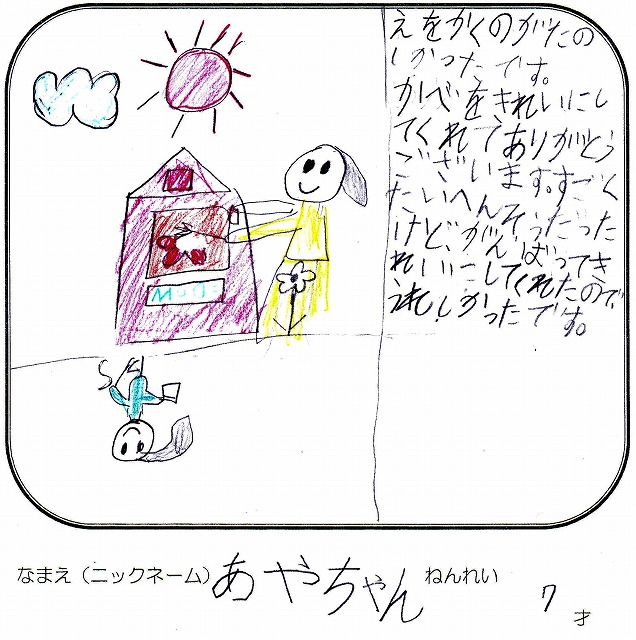 えをかくのがたの
しかったです。
かべをきれいにし
てくれてありがとう
ございます。すごく
たいへんそうだった
けど、がんばってき
れいにしてくれたので
うれしかったです。
なまえ(ニックネーム)あやちゃん ねんれい 7才